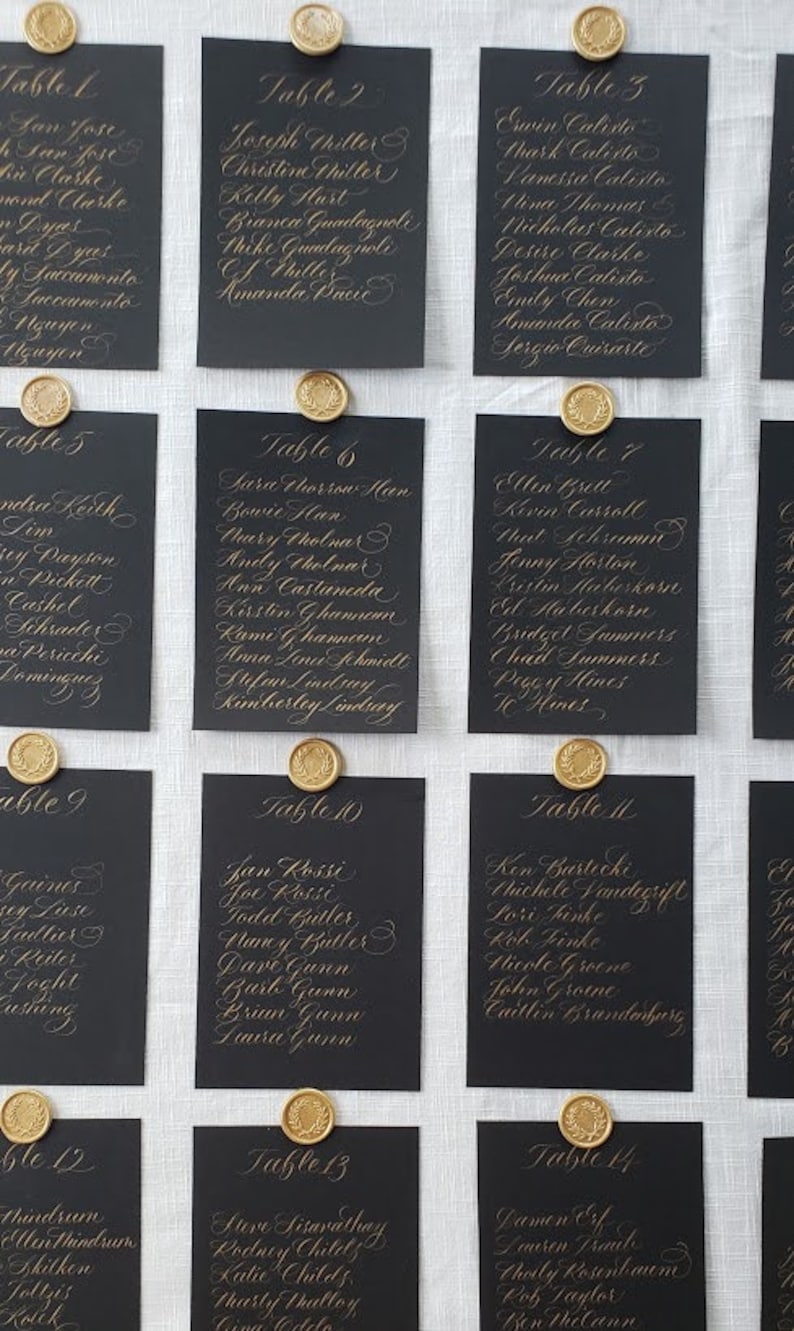 Table 1
San Jose
San Jose
Clarke
mond Clarke
Dyas
Dyas
Saccamonto
Saccamonto
Nguyen
Nguyen
Table 2
Joseph Miller
Christine Miller
Kelly Hurt
Bianca Guadagnoli
Mike Guadagnoli
CJ Miller
Amanda Pacic
Table 3
Erwin Calixto
Mark Calixto
Vanessa Calixto
Nina Thomas
Nicholas Calixto
Desire Clarke
Joshua Calixto
Emily Chen
Amanda Calixto
Sergio Quisarte
Table 5
ndra Keith
Lim
sey Payson
n Pickett
Cashel
Schrader
na Pericchi
Dominguez
Table 6
Sara Morrow Han
Bowie Han
Mary Molnar
Andy Molnar
Ann Castaneda
Kirstin Ghannam
Rami Ghannam
Anna Lenei Schmidt
Stefan Lindsay
Kimberley Lindsay
Table 7
Ellen Brett
Kevin Carroll
Matt Schramm
Jenny Horton
Kristin Haberkorn
Ed Haberkorn
Bridget Summers
Chad Summers
Peggy Hines
TC Hines
able 9
Gaines
sey Liese
Taillier
i Reiter
Voght
Cushing
Table 10
Jan Rossi
Joe Rossi
Todd Butler
Nancy Butler
Dave Gunn
Barb Gunn
Brian Gunn
Laura Gunn
Table 11
Ken Bartecki
Michele Vandegrift
Lori Finke
Rob Finke
Nicole Groene
John Groene
Caitlin Brandenburg
ble 12
Mindrum
Ellen Mindrum
Shilken
Toltzis
Kolck
Table 13
Steve Sisavathay
Rodney Childs
Katie Childs
Marly Mulloy
Table 14
Damon Erf
Lauren Traub
Molly Rosenbaum
Rob Taylor
Ben McCann